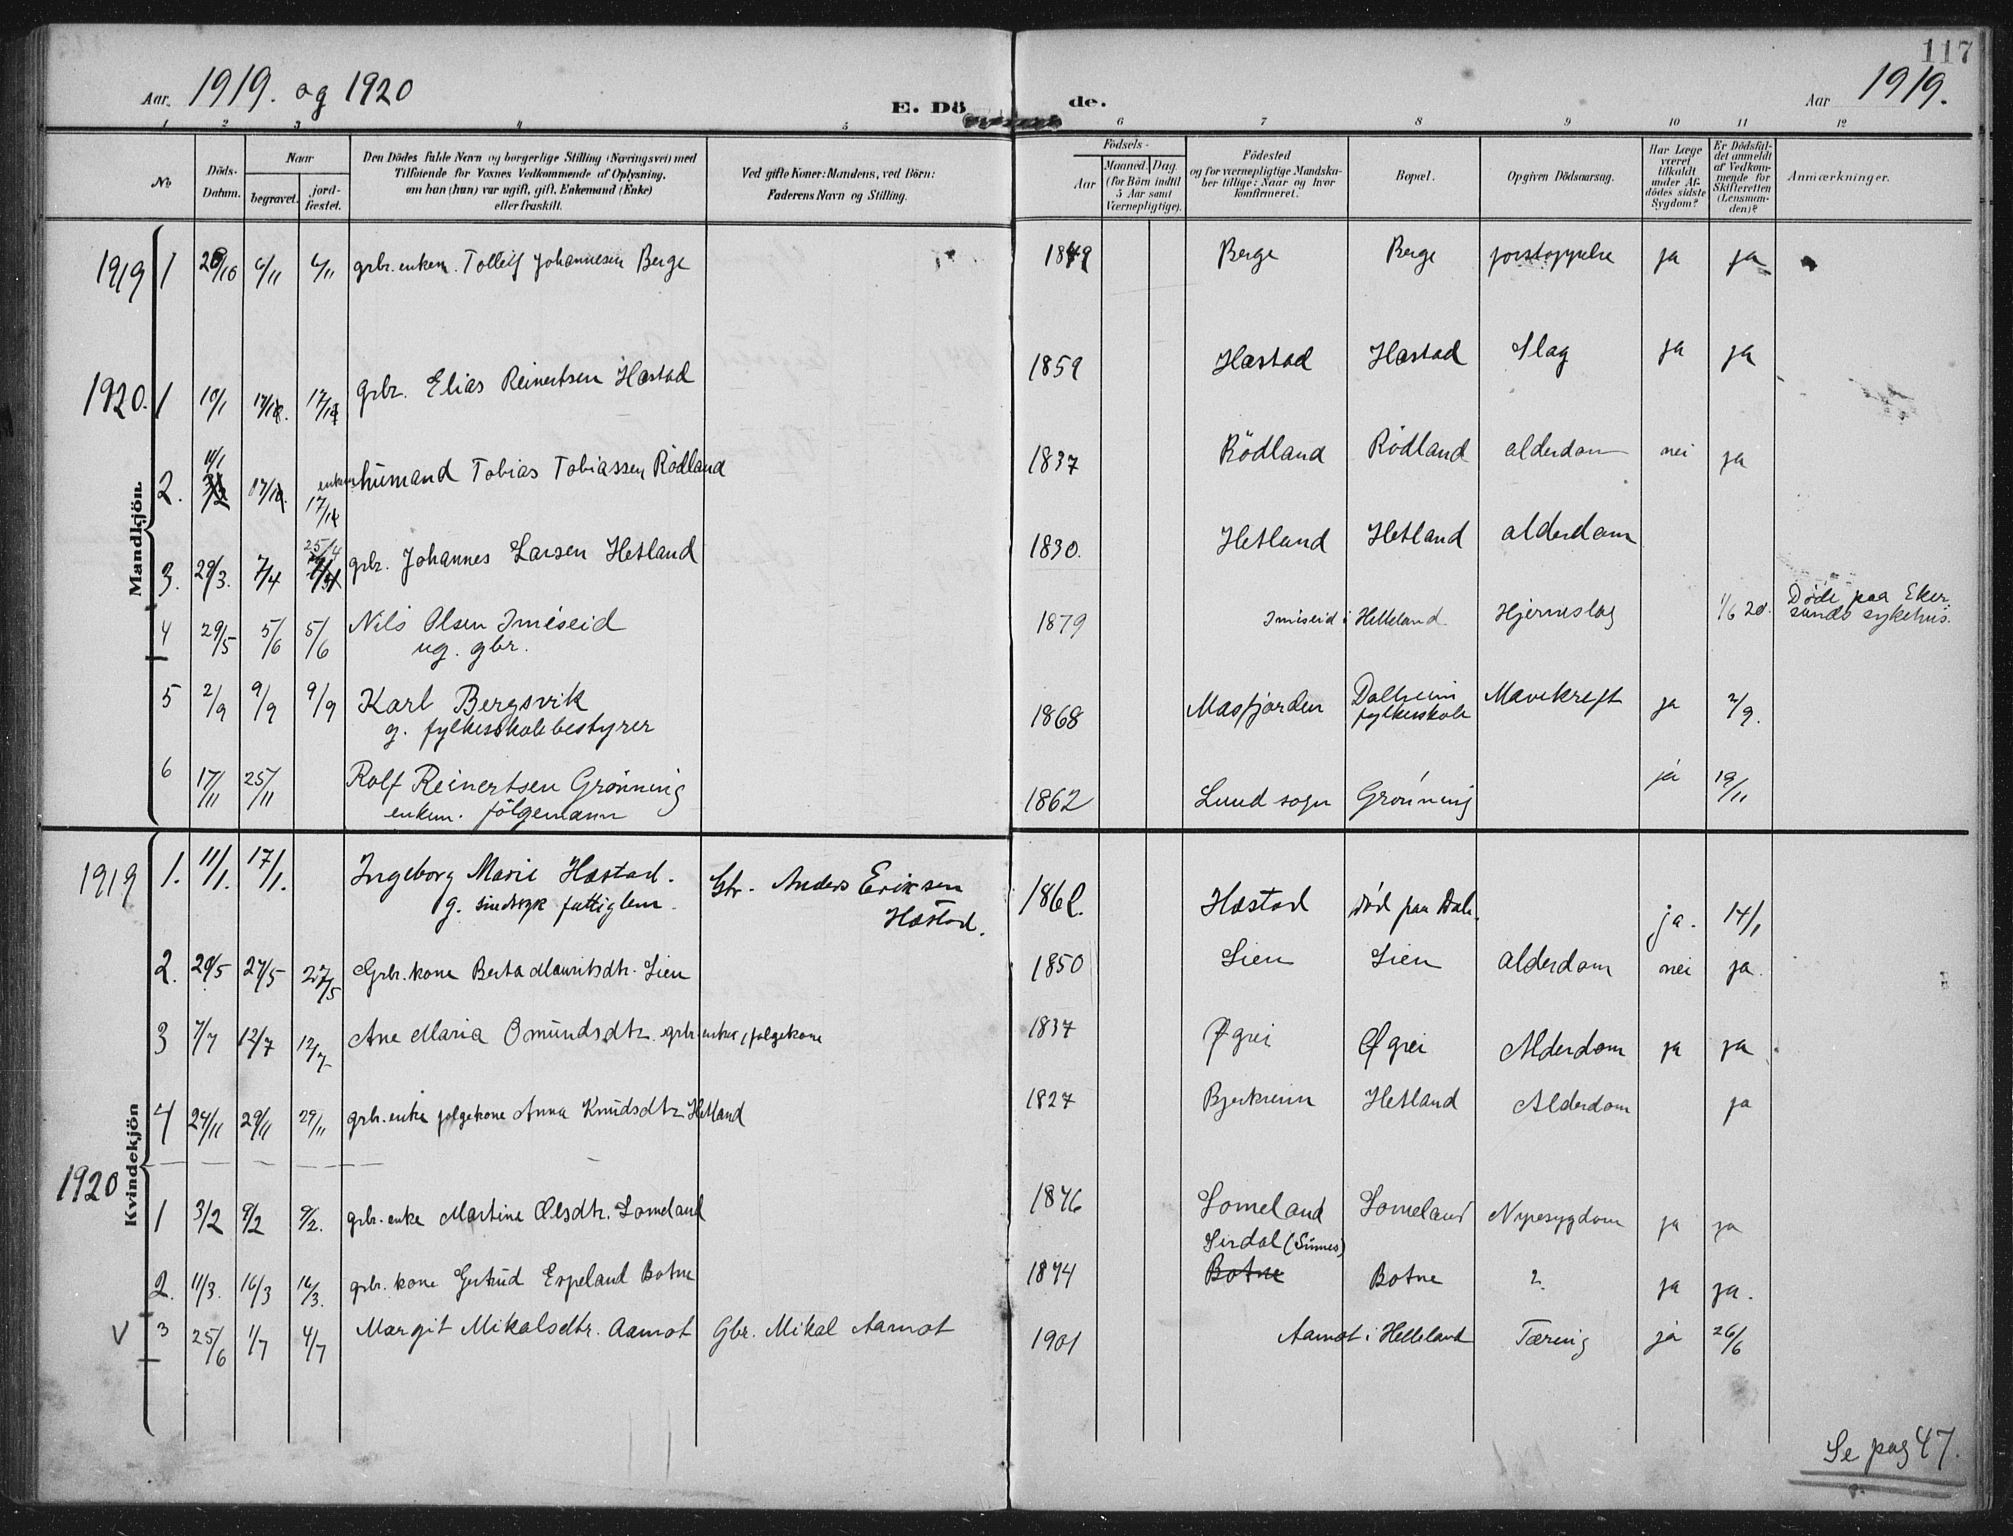 117
Aar. 1919. og 1920
E. Dö
de.
Aar 1919.
1 2 3 4 5 6 7 8 9 10 11 12
No
Döds-Datum.
Naar
begravet.
jord-fæstet.
Den Dödes fulde Navn og borgerlige Stilling (Næringsvei) med
Tilföiende for Voxnes Vedkommende af Oplysning,
om han (hun) var ugift, gift, Enkemand (Enke)
eller fraskilt.
Ved gifte Koner: Mandens, ved Börn:
Faderens Navn og Stilling.
Födsels-
Aar
Maaned. Dag.
(for Börn indtil
5 Aar samt
Værnepligtige).
Födested
og for værnepligtige Mandska-
ber tillige: Naar og hvor
konfirmeret.
Bopæl.
Opgiven Dödsaarsag.
Har Læge
været
tilkaldt
under Af-
dödes sidste
Sygdom?
Er Dödsfal-
det anmeldt
af Vedkom-
mende for
Skifteretten
(Lensman-
den)?
Anmærkninger.
Mandkjön.
1919 1 26/10 6/11 6/11 grbr. enkem. Tolleif Johannesen Berge 1849 Berge Berge forstoppelse ja ja
1920. 1 10/1 17/1 17/1 grbr. Elias Reinertsen Hæstad 1859 Hæstad Hæstad Slag ja ja
2. 11/1 17/1 17/1 enkem. husmand Tobias Tobiassen Rödland 1837 Rödland Rödland alderdom nei ja
3. 29/3. 7/4 25/4 grbr. Johannes Larsen Hetland 1830. Hetland Hetland alderdom
4 29/5 5/6 5/6 Nils Olsen Imeseid 1879 Imeseid i Helleland Hjerneslag 1/6 20. Döde paa Eker
ug. gbr. sunds sykehus.
5 2/9 9/9 9/9 Karl Bergsvik 1868 Masfjorden Dalheim Mavekreft ja 2/9.
g. fylkesskolebestyrer fylkesskole
6 17/11 25/11 Rolf Reinertsen Grönning 1862 Lund sogn Grönning ja 19/11
enkem. fölgemann
Kvindekjön
1919 1. 11/1. 17/1. Ingeborg Marie Hæstad. Gbr. Anders Eriksen 1862. Hæstad död paa Dale. ja. 14/1
g. sindssyk fattiglem. Hæstad.
2. 20/5 27/5 27/5 Grbr. kone Berta Mauritsdtr. Lien 1850 Lien Lien alderdom nei ja.
3 7/7 12/7 12/7 Ane Maria Omundsdtr. grbr. enke, folgekone 1837 Øgrei Øgrei Alderdom ja ja
4 24/11 29/11 29/11 grbr. enke folgekone Anna Knudsdtr Hetland 1827 Bjerkreim Hetland Alderdom ja
1920 1 3/2 9/2 9/2. grbr. enke Martine Olsdtr. Lomeland 1846 Lomeland Lomeland Nyresygdom ja ja
2. 11/3. 16/3 16/3. grbr. kone Gertrud Espeland Botne 1874 Sirdal (Sinnes)
Botne Botne ? ja ja.
V 3 25/6 1/7 4/7 Margit Mikalsdtr. Aamot Gbr. Mikal Aamot 1901 Aamot i Helleland Tæring ja 26/6
Se pag 47.